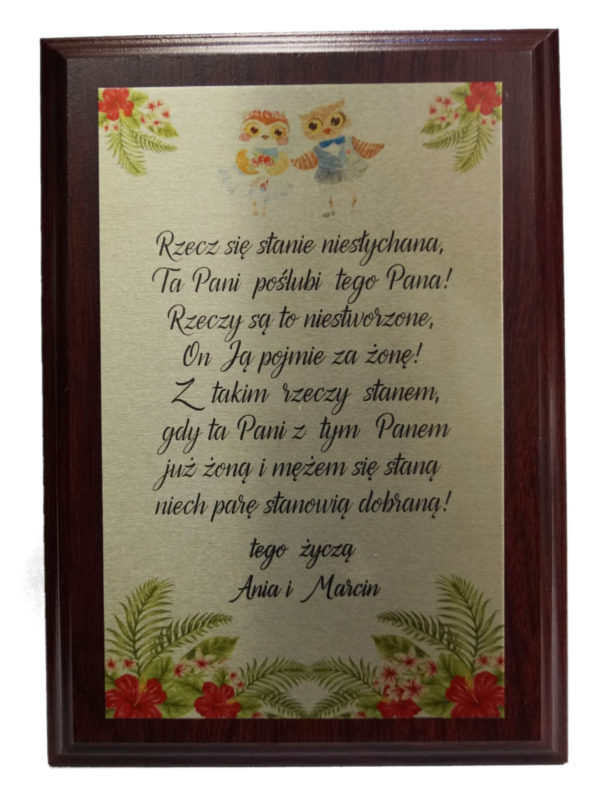 Rzecz się stanie niesłychana,
Ta Pani poślubi tego Pana!
Rzeczy są to niestworzone,
On Ją pojmie za żonę!
Z takim rzeczy stanem,
gdy ta Pani z tym Panem
już żoną i mężem się staną
niech parę stanowią dobraną!
tego życzą
Ania i Marcin